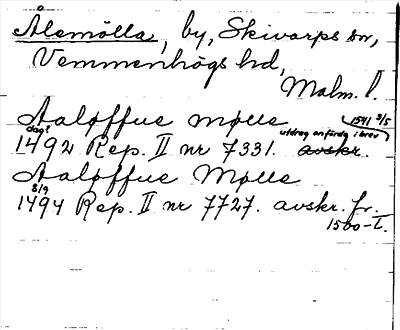 Ålemölla, by, Skivarps sn,
Vemmenhögs hd,
Malm. l.
Aaløffue mølle
1492 dag? Rep. II nr 7331. avskr. utdrag anfördg i brev 1541 3/5
Aaløffue Mølle
1494 8/9 Rep. II nr 7727. avskr. fr.
1500-t.